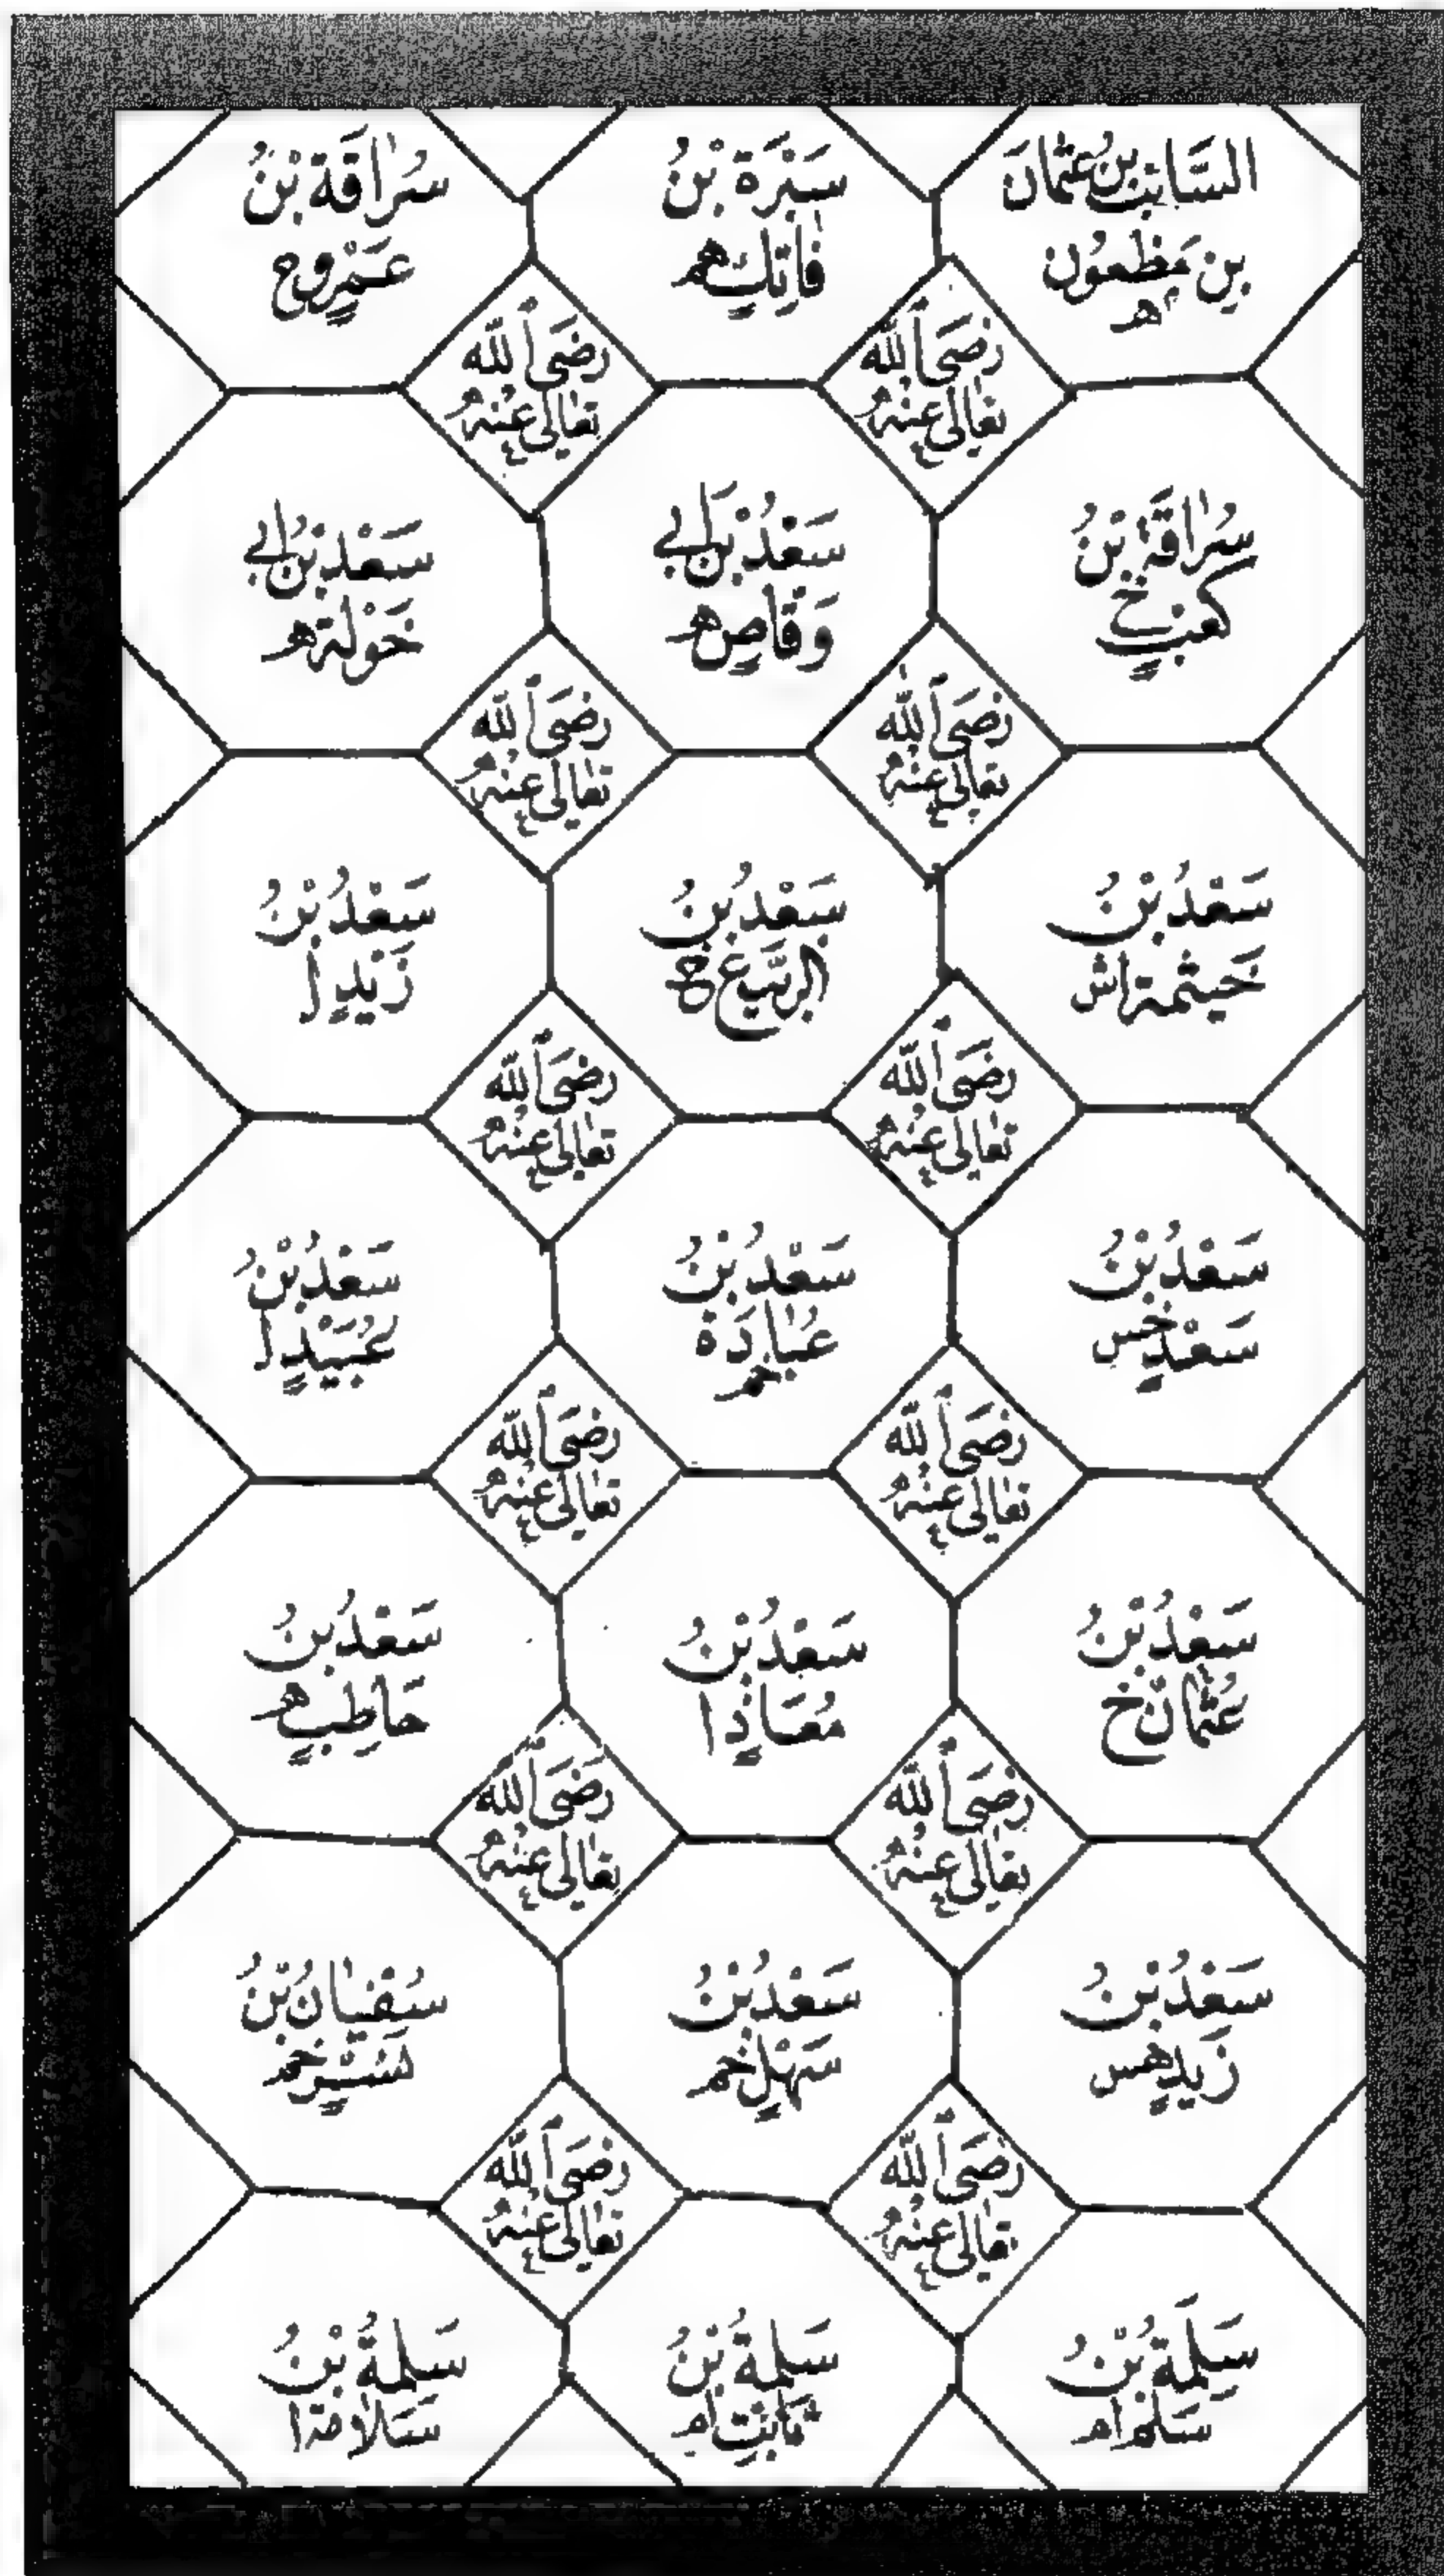 السَّائِبُ بْنُ عُثْمَانَ
بِن مَظعُون مھ
سَبْرَةُ بْنُ
فَاتِكٍ ھم
سُرَاقَةُ بْنُ
عَمْرٍو خ
رَضِيَ اللّٰه
تَعَالٰى عَنْهُ
رَضِيَ اللّٰه
تَعَالٰى عَنْهُ
سُرَاقَةُ بْنُ
كَعْبٍ خ
سَعْدُ بْنُ اَبِي
وَقَاصٍ ھ
سَعْدُ بْنُ اَبِي
خَوْلَة ھ
رَضِيَ اللّٰه
تَعَالٰى عَنْهُ
رَضِيَ اللّٰه
تَعَالٰى عَنْهُ
سَعْدُ بْنُ
خَيْثَمَة اش
سَعْدُ بْنُ
الرَّبِيْع خ
سَعْدُ بْنُ
زَيْدٍ ا
رَضِيَ اللّٰه
تَعَالٰى عَنْهُ
رَضِيَ اللّٰه
تَعَالٰى عَنْهُ
سَعْدُ بْنُ
سَعْدٍ خس
سَعْدُ بْنُ
عُبَادَةَ
خم
سَعْدُ بْنُ
عُبَيْدٍ ا
رَضِيَ اللّٰه
تَعَالٰى عَنْهُ
رَضِيَ اللّٰه
تَعَالٰى عَنْهُ
سَعْدُ بْنُ
عُثْمَانَ خ
سَعْدُ بْنُ
مُعَاذٍ ا
سَعْدُ بْنُ
حَاطِبٍ ھ
رَضِيَ اللّٰه
تَعَالٰى عَنْهُ
رَضِيَ اللّٰه
تَعَالٰى عَنْهُ
سَعْدُ بْنُ
زَيْدٍ ھس
سَعْدُ بْنُ
سَهْلٍ خم
سُفْيَانُ بْنُ
نَسْرٍ خم
رَضِيَ اللّٰه
تَعَالٰى عَنْهُ
رَضِيَ اللّٰه
تَعَالٰى عَنْهُ
سَلَمَةُ بْنُ
سَلَم ام
سَلَمَةُ بْنُ
ثَابِتٍ ام
سَلَمَةُ بْنُ
سَلَامَة ا